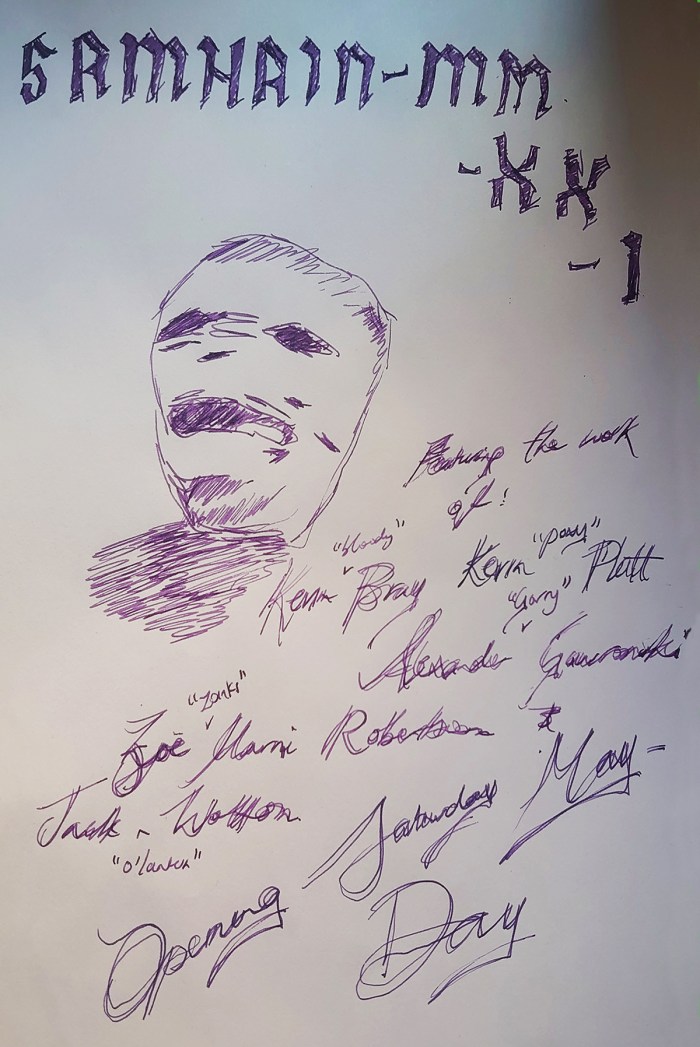 SAMHAIN-MM
-XX
-1
Featuring the work
of:
"bloody"
Kevin Bray
"poxy"
Kevin Platt
"Garry"
Alexander Gawronski
"zonki"
Zoë Marni Robertson &
Jack Wotton.
"O'lantern"
Opening Saturday May-
Day